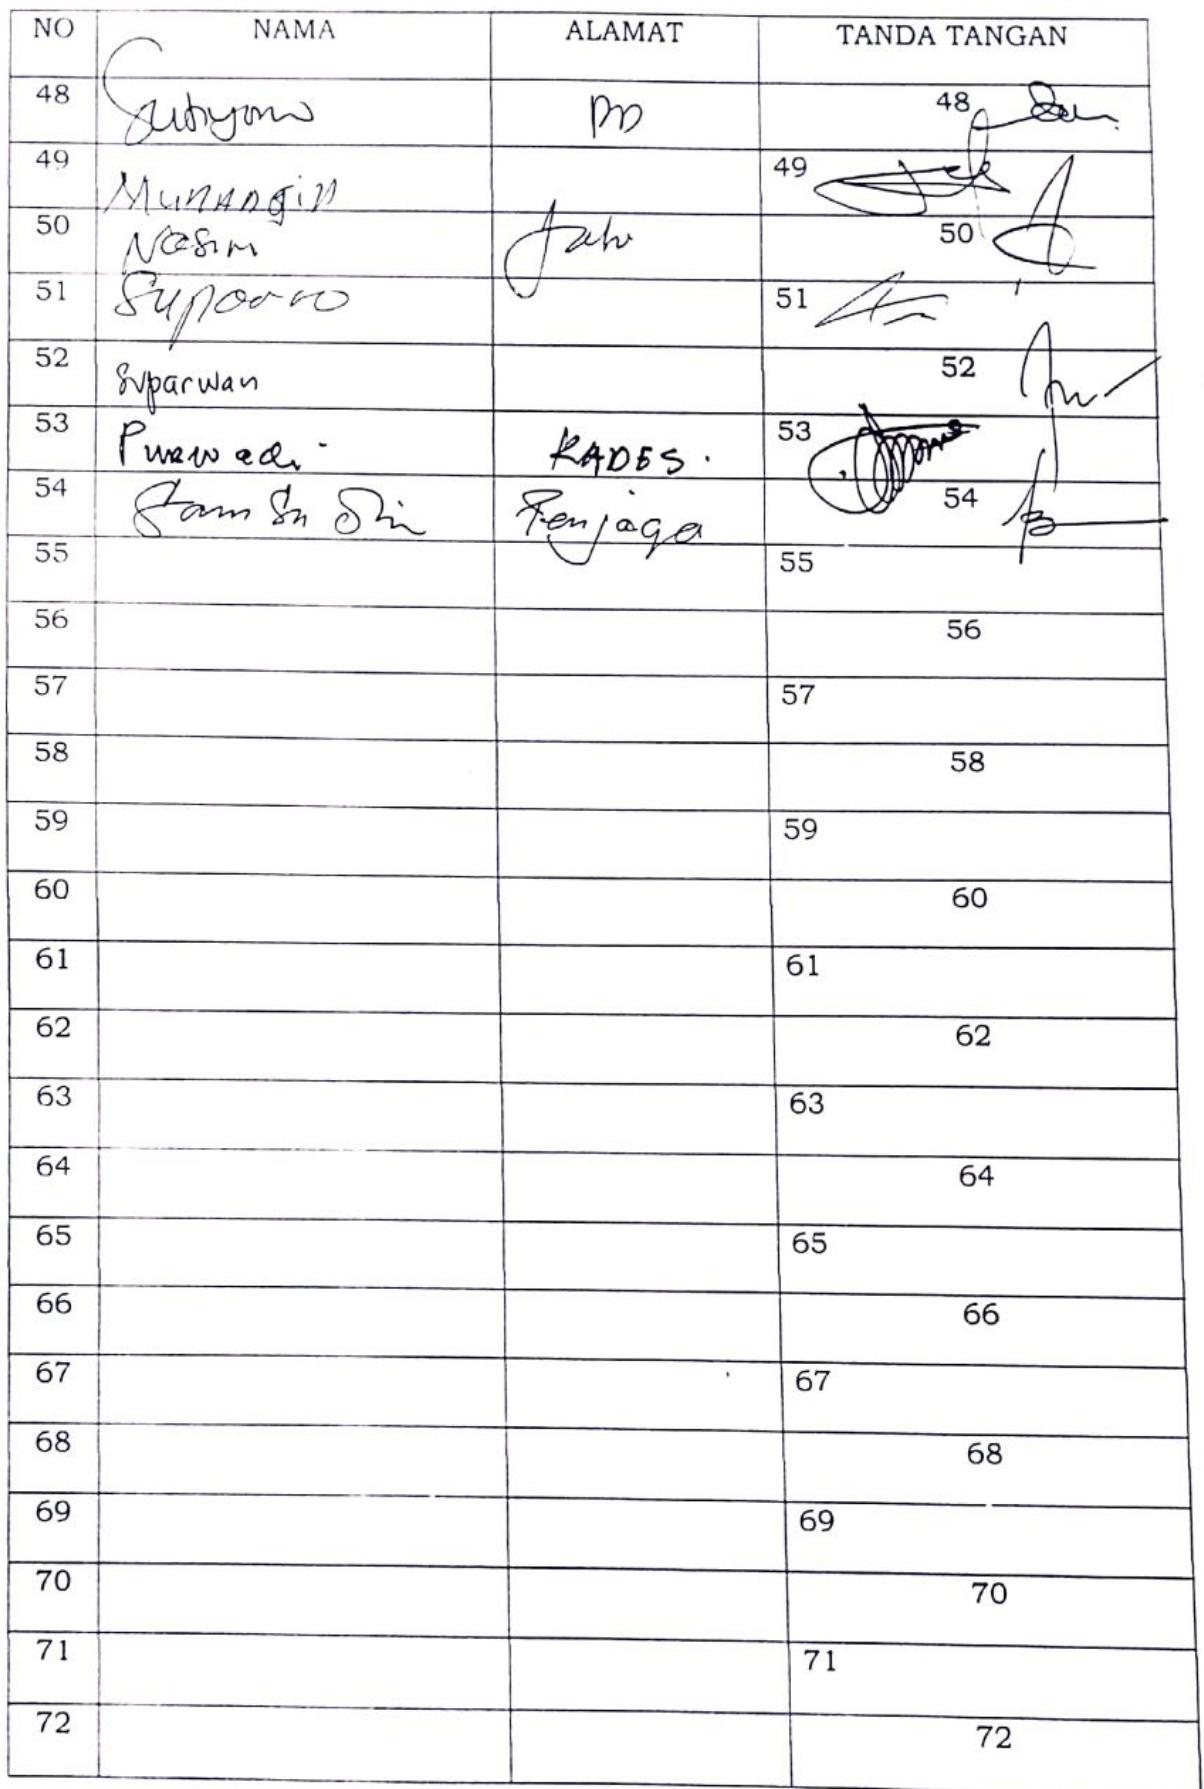 NO NAMA ALAMAT TANDA TANGAN
48 Sutiyono 48
49 Munangin 49
50 Nasim 50
51 51
52 Suparwan 52
53 Purwadi KADES. 53
54 Sam Su Din Penjaga 54
55 55
56 56
57 57
58 58
59 59
60 60
61 61
62 62
63 63
64 64
65 65
66 66
67 67
68 68
69 69
70 70
71 71
72 72